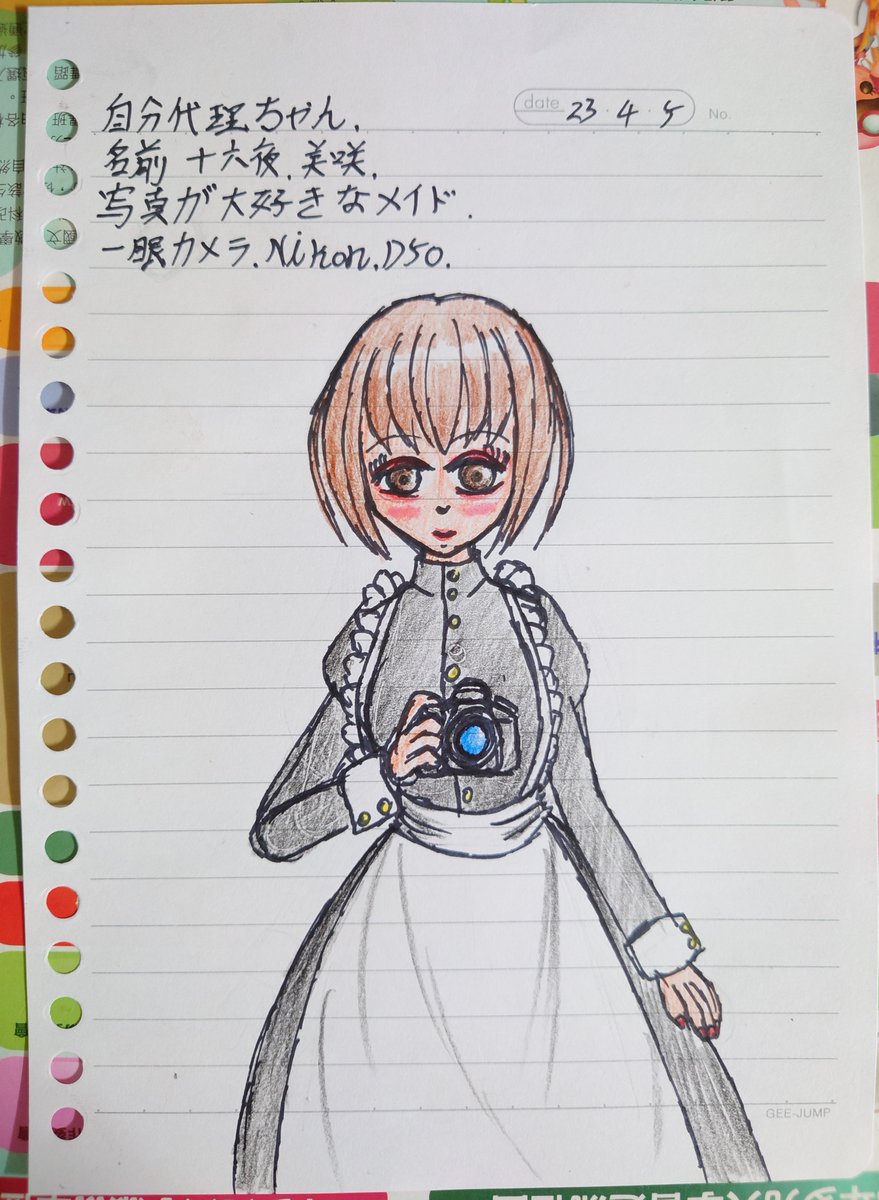 自分代理ちゃん.
名前 十六夜.美咲.
写真が大好きなメイド.
一眼カメラ.Nikon.D50.
date 23・4・5 No.
GEE-JUMP